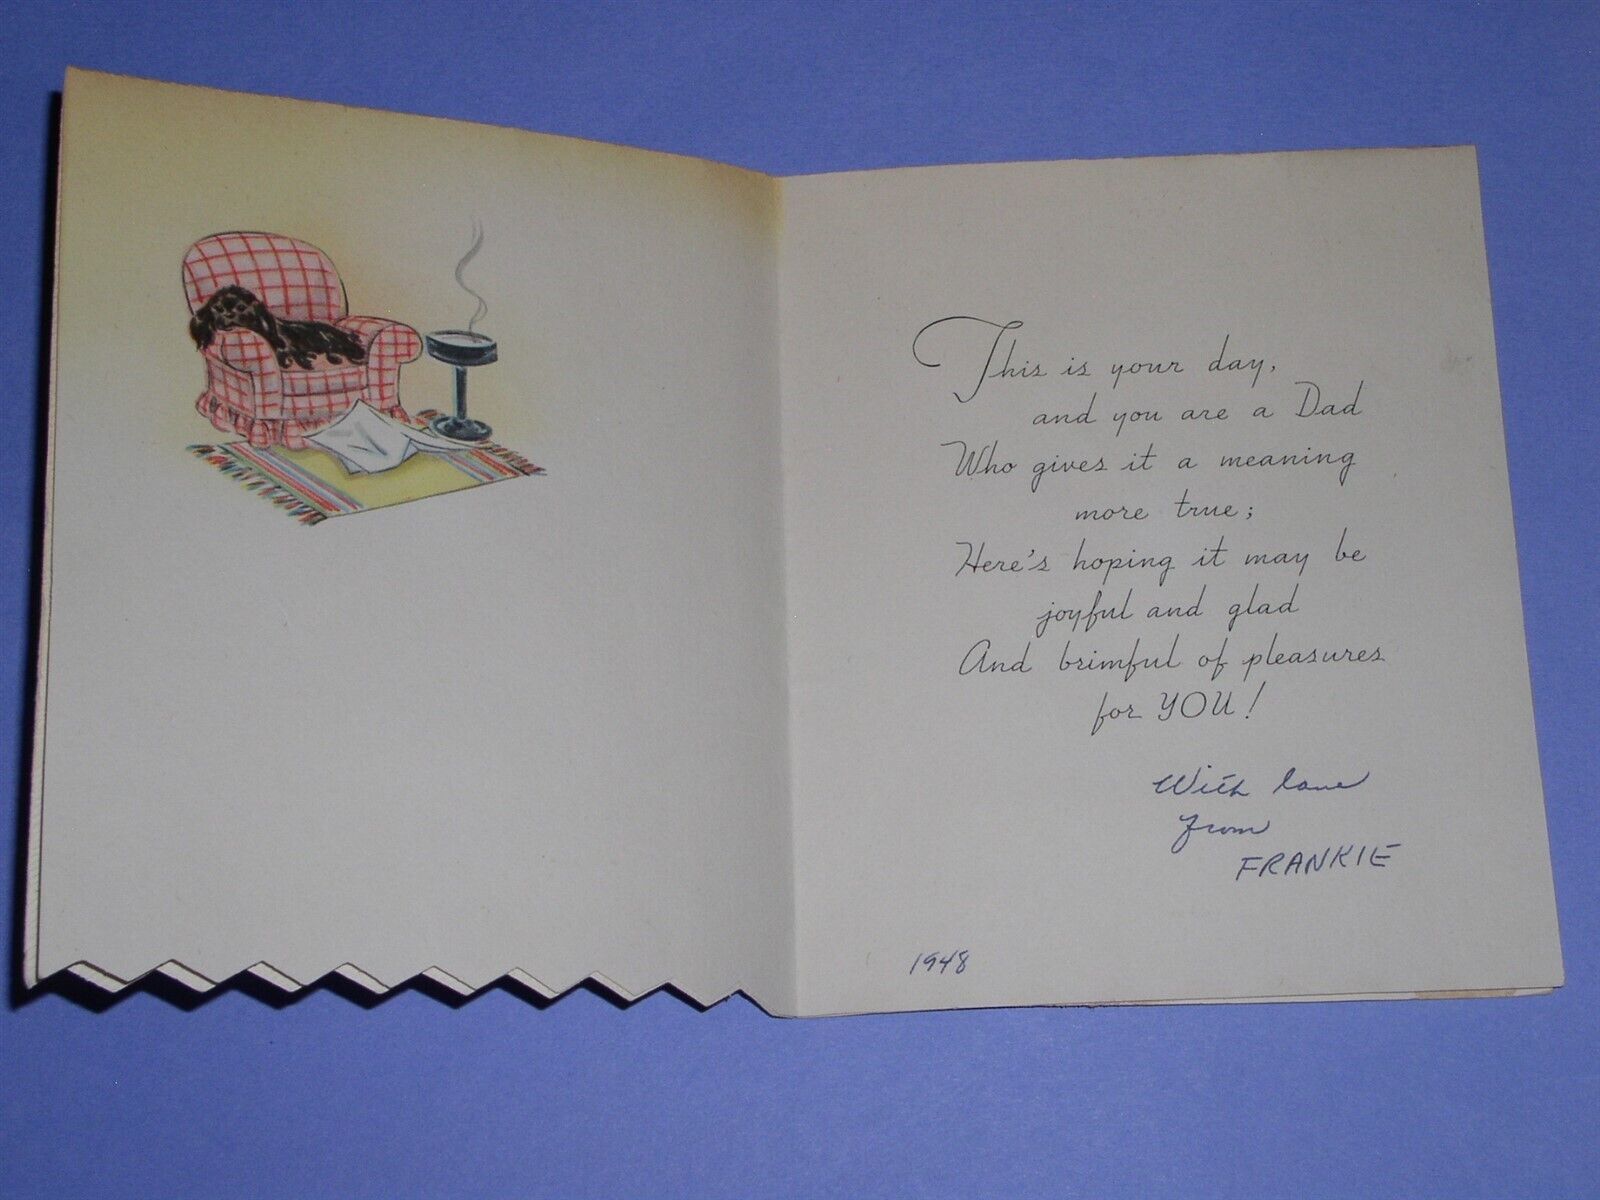 This is your day,
and you are a Dad
Who gives it a meaning
more true;
Here's hoping it may be
joyful and glad
And brimful of pleasures
for YOU!
With love
from
FRANKIE
1948